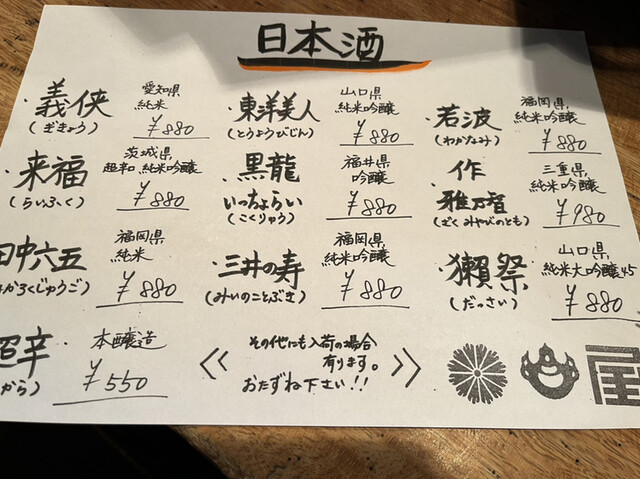 日本酒
・義侠
(ぎきょう)
愛知県
純米
¥880
・東洋美人
(とうようびじん)
山口県
純米吟醸
¥880
・若波
(わかなみ)
福岡県
純米吟醸
¥880
・来福
(らいふく)
茨城県
超辛口 純米吟醸
¥880
・黒龍
いっちょらい
(こくりゅう)
福井県
吟醸
¥880
・作
雅乃智
(ざく みやびのとも)
三重県
純米吟醸
¥980
田中六五
かろくじゅうご)
福岡県
純米
¥880
・三井の寿
(みいのことぶき)
福岡県
純米吟醸
¥880
・獺祭
(だっさい)
山口県
純米大吟醸45
¥880
超辛
から)
本醸造
¥550
その他にも入荷の場合
有ります。
おたずね下さい!!